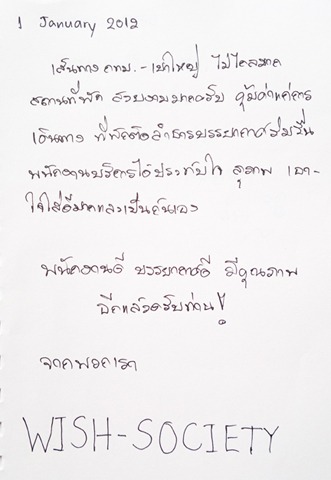 1 January 2012
เส้นทาง กทม. - เขาใหญ่ ไม่ไกลมาก
สถานที่พัก สวยงามมากครับ คุ้มค่าแก่การ
เดินทาง ที่พักติดลำธารบรรยากาศร่มรื่น
พนักงานบริการได้ประทับใจ สุภาพ เอา-
ใจใส่ดีมากและเป็นกันเอง
พนักงานดี บรรยากาศดี มีคุณภาพ
อีกแล้วครับท่าน!
จากพวกเรา
WISH-SOCIETY